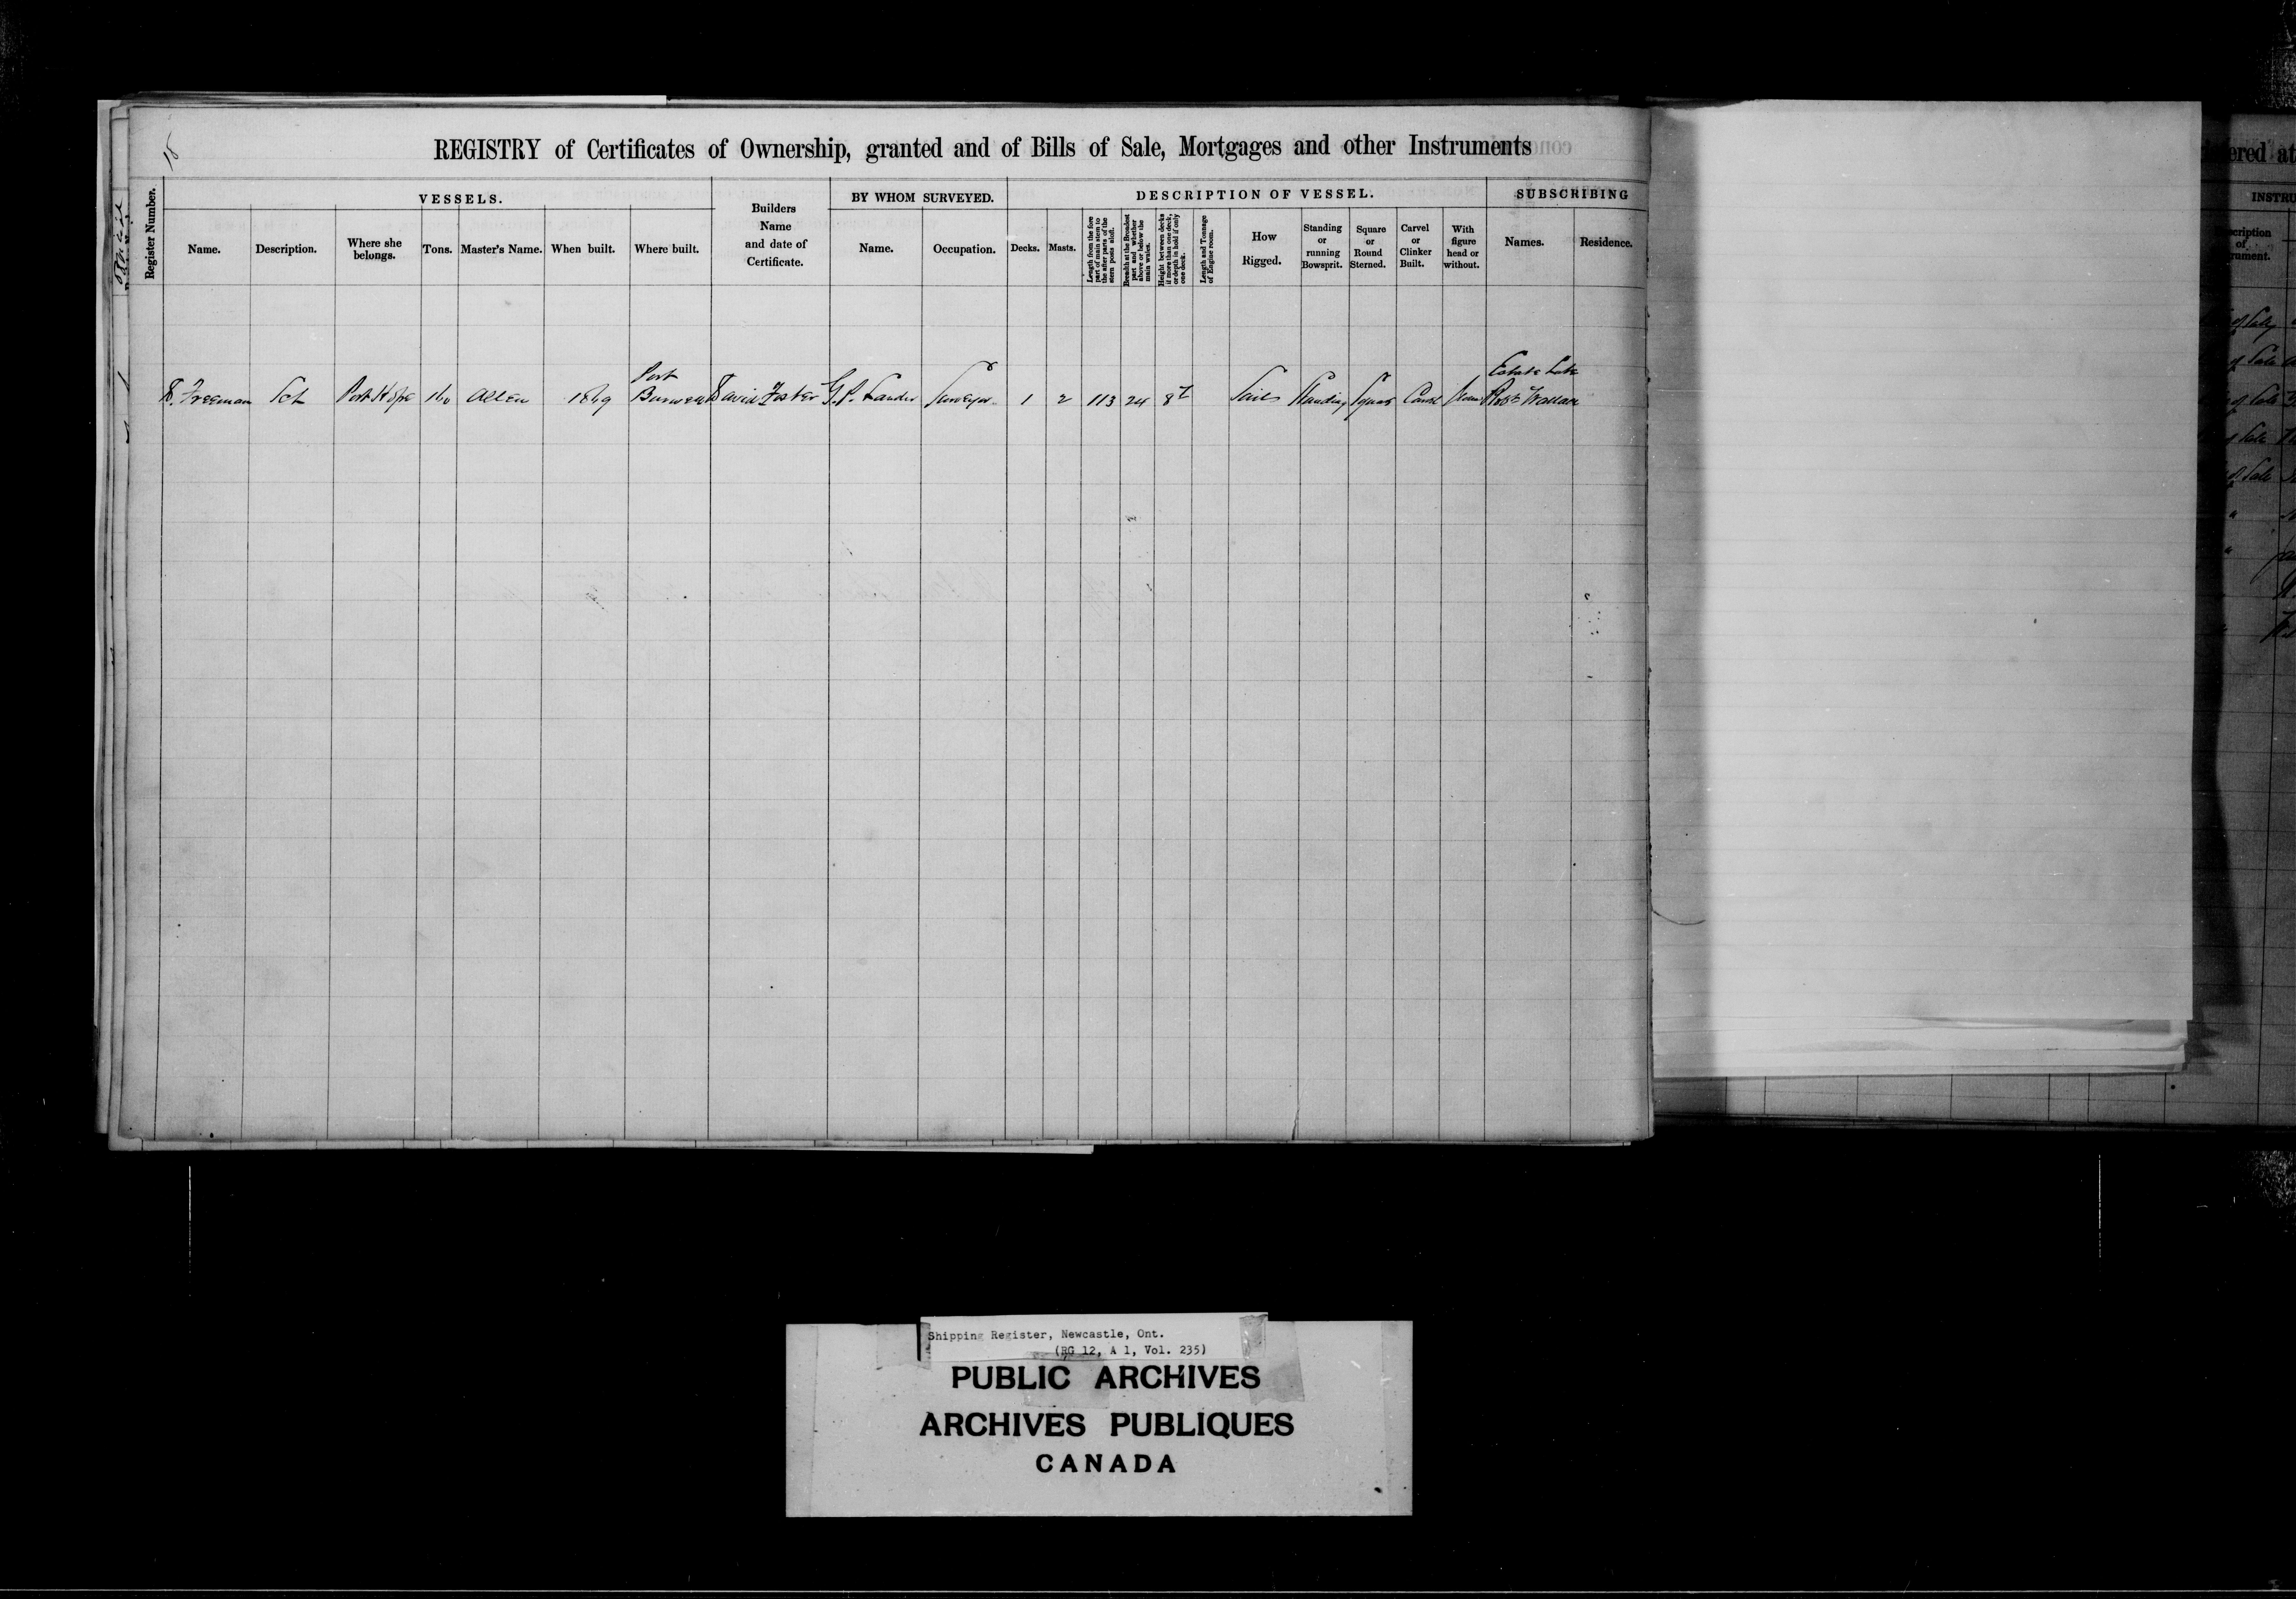 18
REGISTRY of Certificates of Ownership, granted and of Bills of Sale, Mortgages and other Instruments
ered at
Register Number.
VESSELS.
Name.
Description.
Where she belongs.
Tons.
Master's Name.
When built.
Where built.
Builders Name and date of Certificate.
BY WHOM SURVEYED.
Name.
Occupation.
DESCRIPTION OF VESSEL.
Decks.
Masts.
Length from the fore part of main stem to the after parts of the stern posts aloft.
Breadth at the Broadest part and whether above or below the main wales.
Height between decks if more than one deck, or depth in hold if only one deck.
Length and Tonnage of Engine room.
How Rigged.
Standing or running Bowsprit.
Square or Round Sterned.
Carvel or Clinker Built.
With figure head or without.
SUBSCRIBING
Names.
Residence.
INSTRU
cription of rument.
Freeman Sch Port Hope 160 Allen 1869 Port Burwell David Foster Surveyor 1 2 113 24 8 Sails Standing Square Carvel None Estate Late Robt Wallace
of Sale
of Sale
of Sale
of Sale
of Sale
Shipping Register, Newcastle, Ont.
(RG 12, A 1, Vol. 235)
PUBLIC ARCHIVES
ARCHIVES PUBLIQUES
CANADA